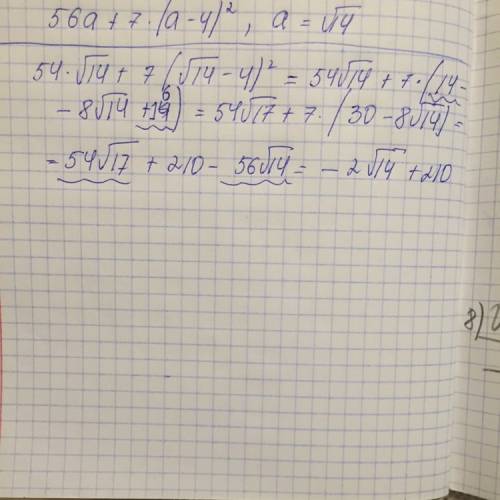 56a + 7 · (a - 4)², a = √14
54 · √14 + 7 (√14 - 4)² = 54√14 + 7 · (14 -
- 8√14 + 16) = 54√17 + 7 · (30 - 8√14) =
= 54√17 + 210 - 56√14 = - 2√14 + 210
8)